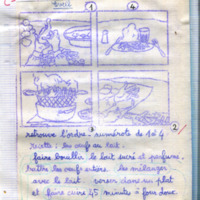 1 4
3 2
retrouve l'ordre. numérote de 1 à 4
recette : les œufs au lait.
faire bouillir le lait sucré et parfumé,
battre les œufs entiers. les mélanger
avec le lait. verser dans un plat
et faire cuire 45 minutes à four doux.